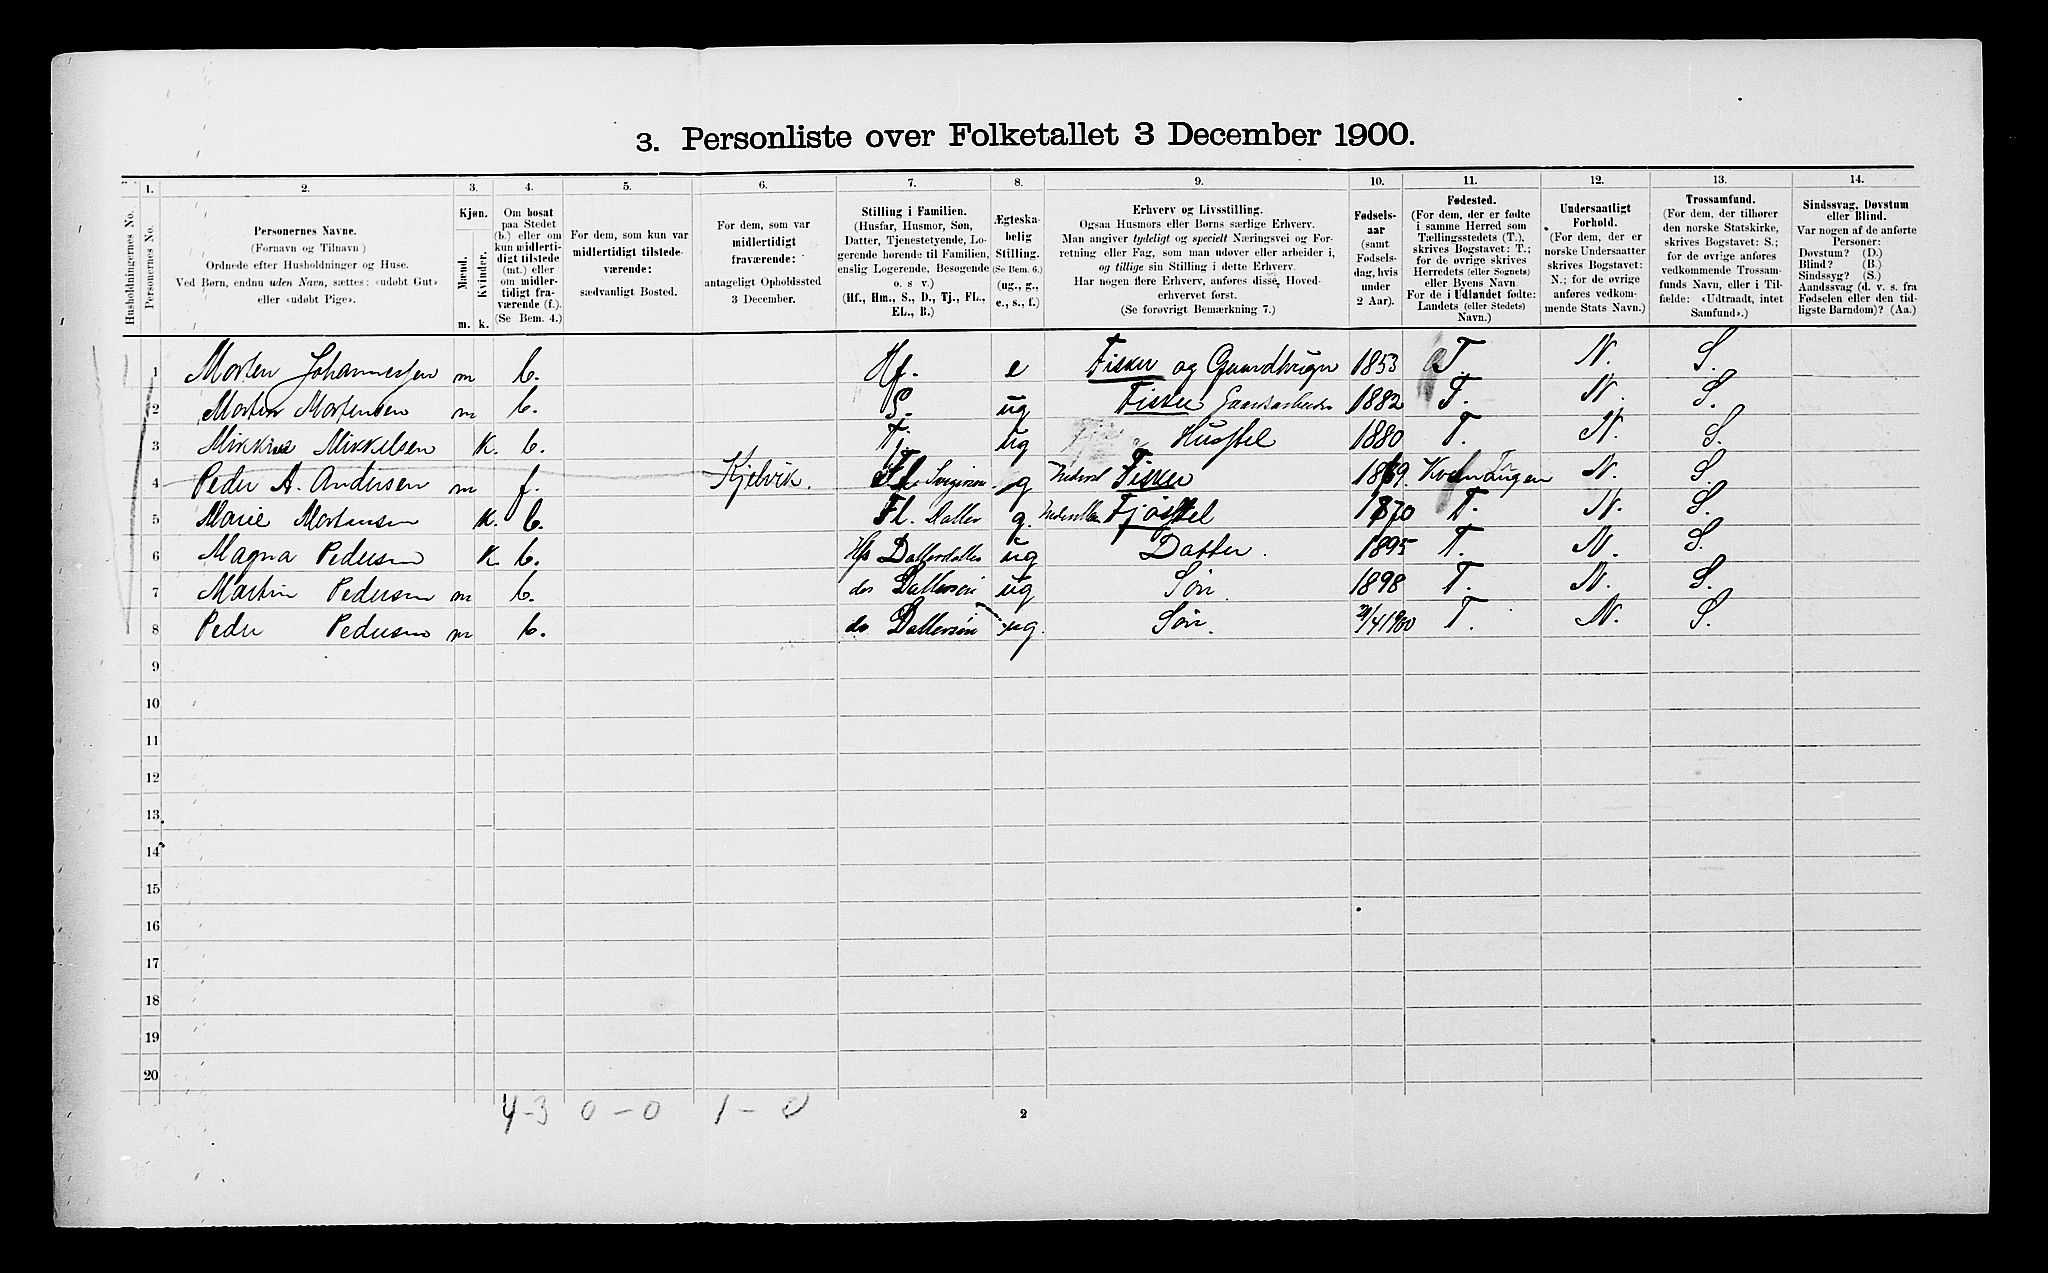 3. Personliste over Folketallet 3 December 1900.
1. 2. 3. 4. 5. 6. 7. 8. 9. 10. 11. 12. 13. 14.
Husholdningernes No.
Personernes No.
Personernes Navne.
(Fornavn og Tilnavn)
Ordnede efter Husholdninger og Huse.
Ved Børn, endnu uden Navn, sættes: «udøbt Gut»
eller «udøbt Pige».
Kjøn.
Mænd.
Kvinder.
m. k.
Om bosat
paa Stedet
(b.) eller om
kun midlerti-
digt tilstede
(mt.) eller
om midler-
tidigt fra-
værende (f.).
(Se Bem. 4.)
For dem, som kun var
midlertidigt tilstede-
værende:
sædvanligt Bosted.
For dem, som var
midlertidigt
fraværende:
antageligt Opholdssted
3 December.
Stilling i Familien.
(Husfar, Husmor, Søn,
Datter, Tjenestetyende, Lo-
gerende hørende til Familien,
enslig Logerende, Besøgende
o. s v.)
(Hf., Hm., S., D., Tj., FL.,
EL., B.)
Ægteska-
belig
Stilling.
(Se Bem. 6.)
(ug., g.,
e., s., f.)
Erhverv og Livsstilling.
Ogsaa Husmors eller Børns særlige Erhverv.
Man angiver tydeligt og specielt Næringsvei og For-
retning eller Fag, som man udøver eller arbeider i,
og tillige sin Stilling i dette Erhverv.
Har nogen flere Erhverv, anføres disse, Hoved-
erhvervet først.
(Se forøvrigt Bemærkning 7.)
Fødsels-
aar
(samt
Fødsels-
dag, hvis
under
2 Aar).
Fødested.
(For dem, der er fødte
i samme Herred som
Tællingsstedets (T.),
skrives Bogstavet: T.;
for de øvrige skrives
Herredets (eller Sognets)
eller Byens Navn
For de i Udlandet fødte:
Landets (eller Stedets)
Navn.)
Undersaatligt
Forhold.
(For dem, der er
norske Undersaatter
skrives Bogstavet:
N.; for de øvrige
anføres vedkom-
mende Stats Navn.)
Trossamfund.
(For dem, der tilhører
den norske Statskirke,
skrives Bogstavet: S.;
for de øvrige anføres
vedkommende Trossam-
funds Navn, eller i Til-
fælde: «Udtraadt, intet
Samfund».)
Sindssvag, Døvstum
eller Blind.
Var nogen af de anførte
Personer:
Døvstum? (D.)
Blind? (B.)
Sindssyg? (S.)
Aandssvag (d. v. s. fra
Fødselen eller den tid-
ligste Barndom)? (Aa.)
1 Morten Johannessen m b. Hf. e Fisker og Gaardbruger 1853 T. N. S.
2 Morten Mortensen m b. S. ug Fisker Gaardsarbeider 1882 T. N. S.
3 Mikkeline Mikkelsen K. b. Tj. ug Husstel 1880 T. N. S.
4 Peder A. Andersen m f. Kjelvik. Fl. Svigersøn g Fisker 1869 Kvænangen N. S.
5 Marie Mortensen K. b. Fl. Datter g. Fjøsstel 1870 T. N. S.
6 Magna Pedersen K. b. Hfs Datterdatter ug Datter. 1895 T. N. S.
7 Martin Pedersen m b. do Dattersøn ug Søn. 1898 T. N. S.
8 Peder Pedersen m b. do Dattersøn ug. Søn. 1900 T. N. S.
9
10
11
12
13
14
15
16
17
18
19
20
4-3 0-0 1-0
2